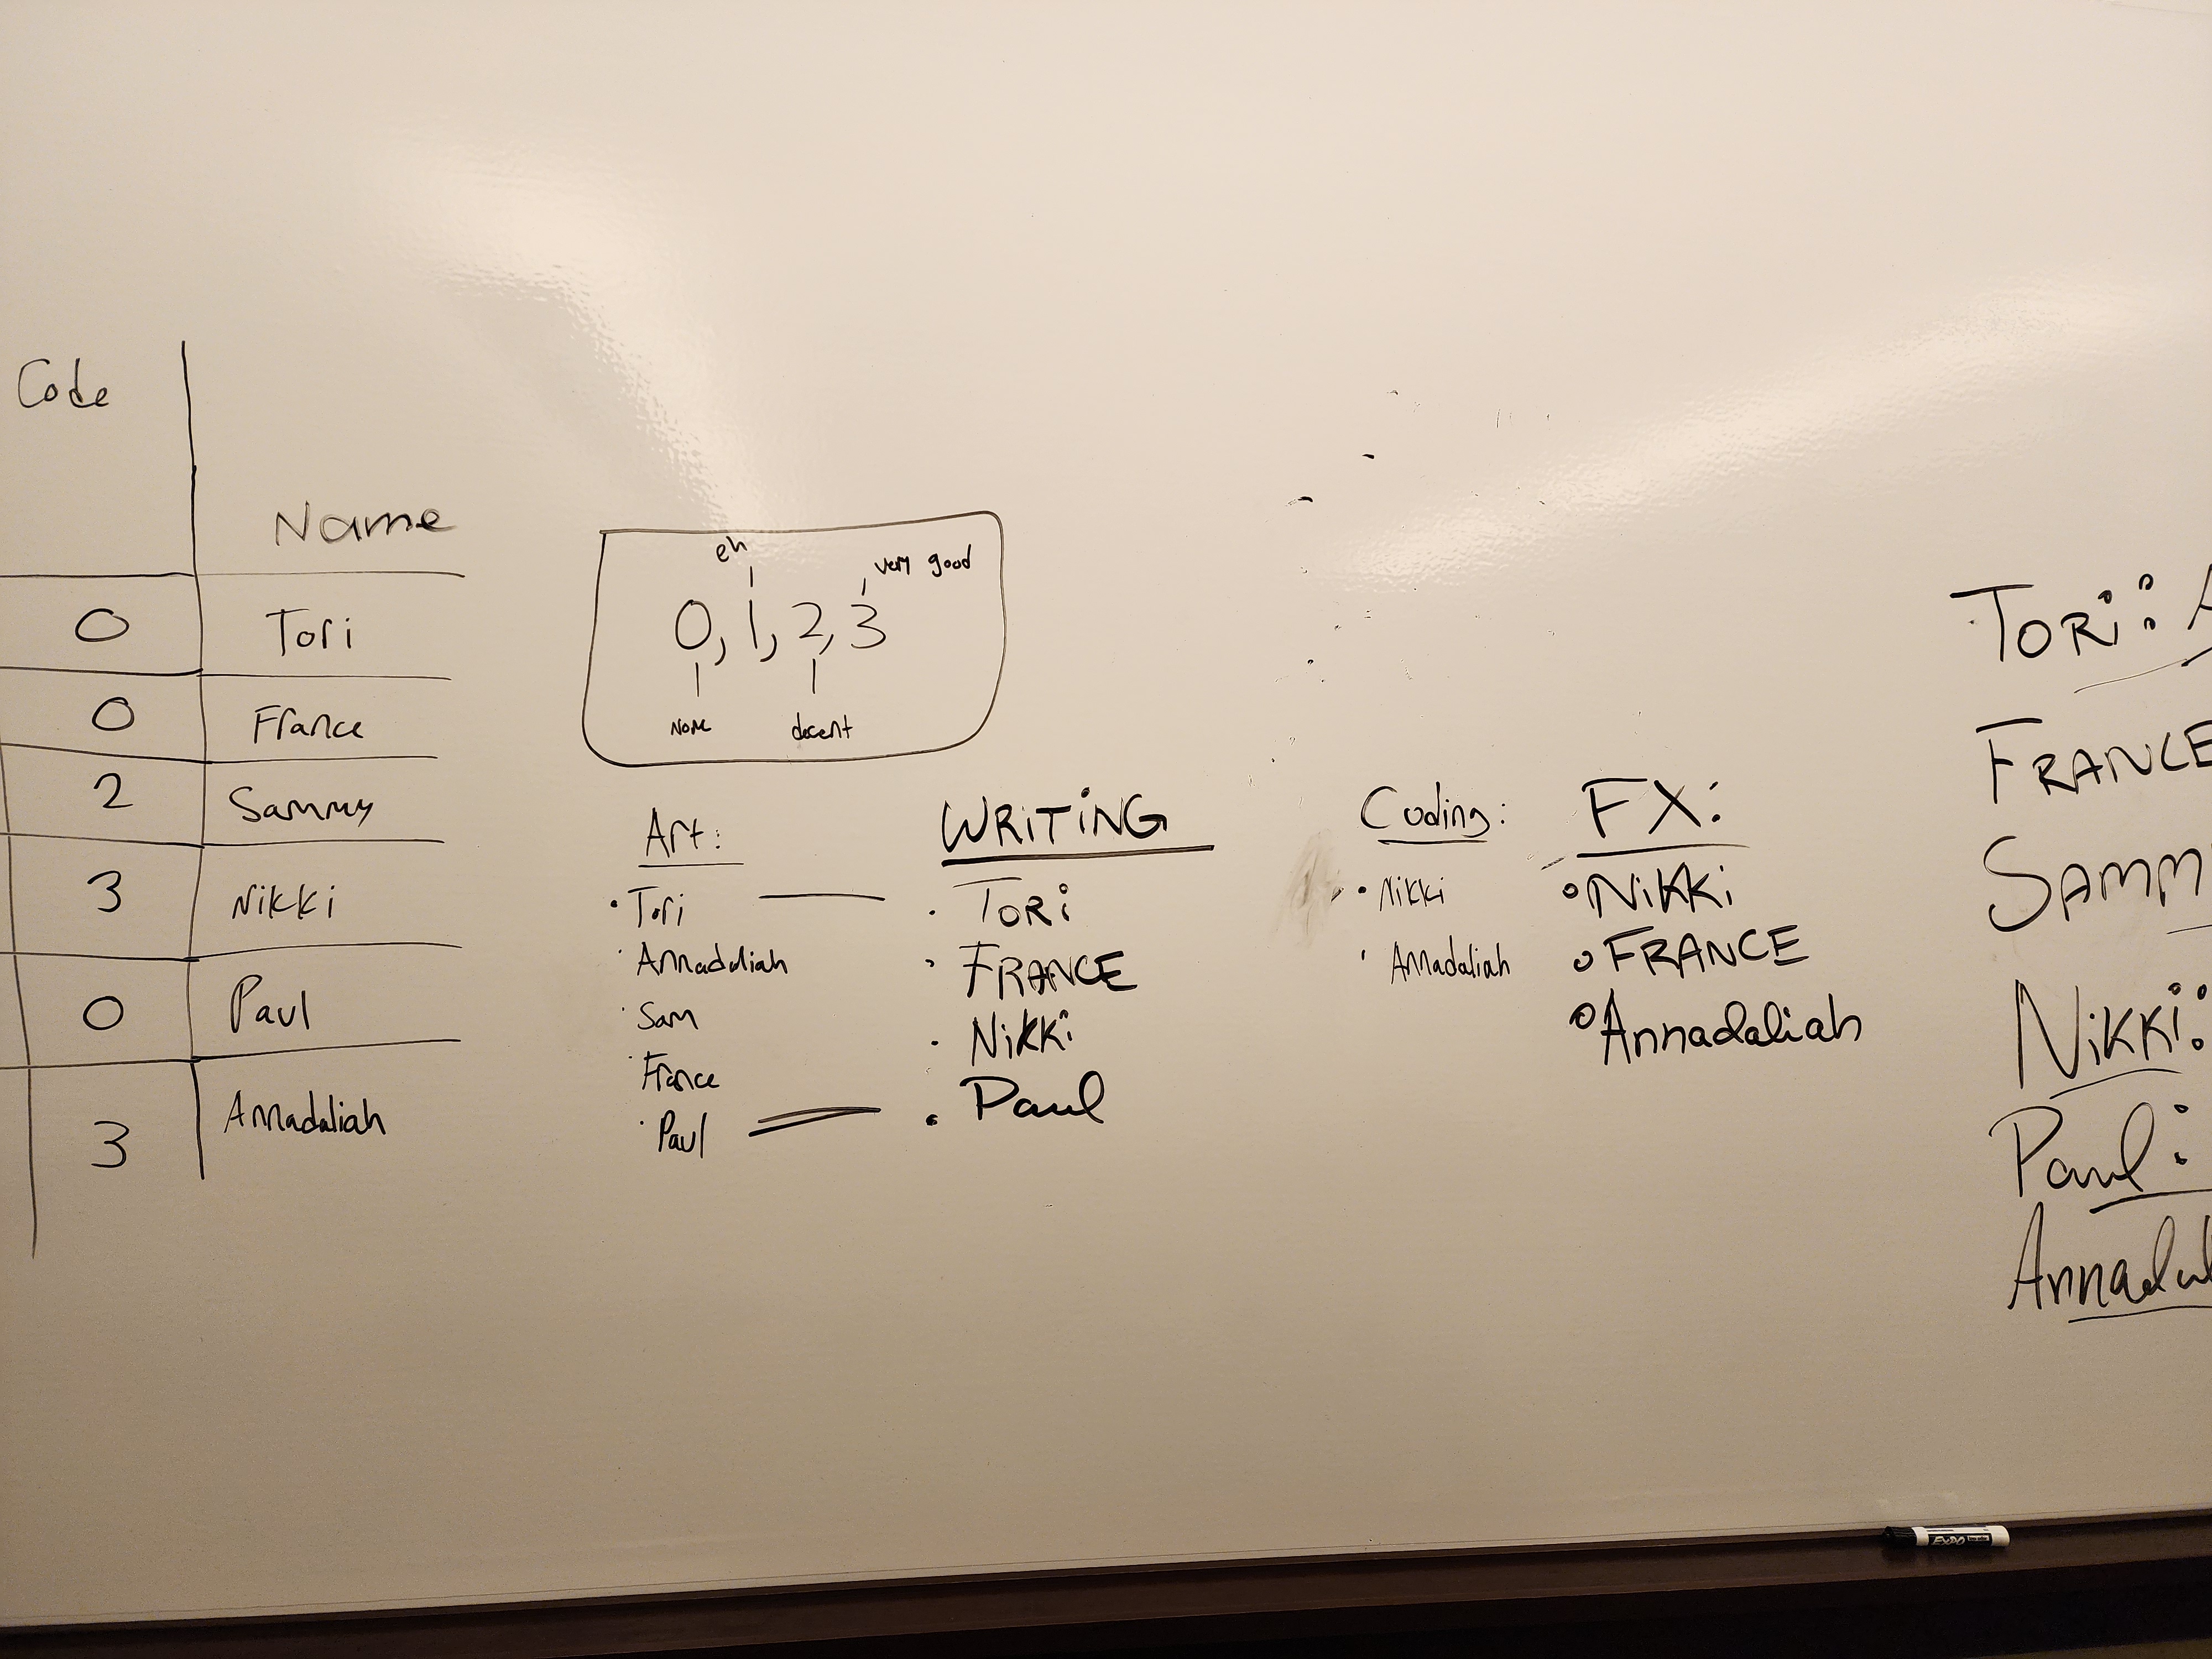 Code
Name
0 Tori
0 France
2 Sammy
3 Nikki
0 Paul
3 Annadaliah
eh
very good
0, 1, 2, 3
none
decent
Art:
· Tori
· Annadaliah
· Sam
· France
· Paul
WRiTiNG
· TORi
· FRANCE
· NiKKi
· Paul
Coding:
· Nikki
· Annadaliah
FX:
• NiKKi
• FRANCE
• Annadaliah
TORi: A
FRANCE
SAMM
NiKKi:
Paul:
Annadal
EXPO